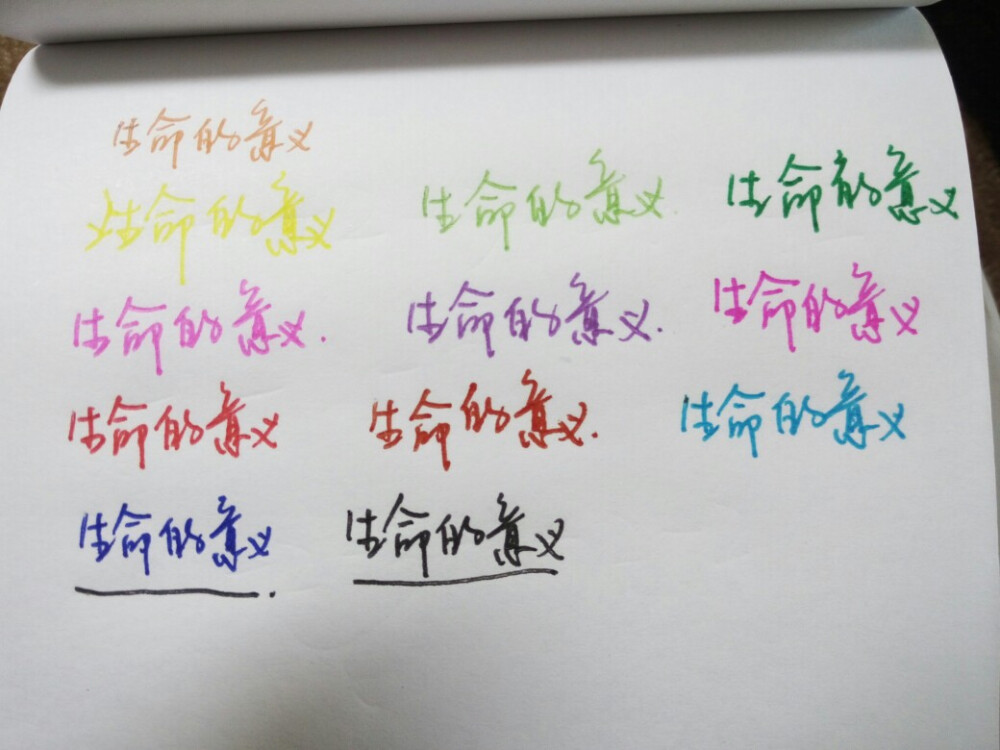 生命的意义
生命的意义 生命的意义. 生命的意义
生命的意义. 生命的意义. 生命的意义
生命的意义 生命的意义. 生命的意义
生命的意义. 生命的意义